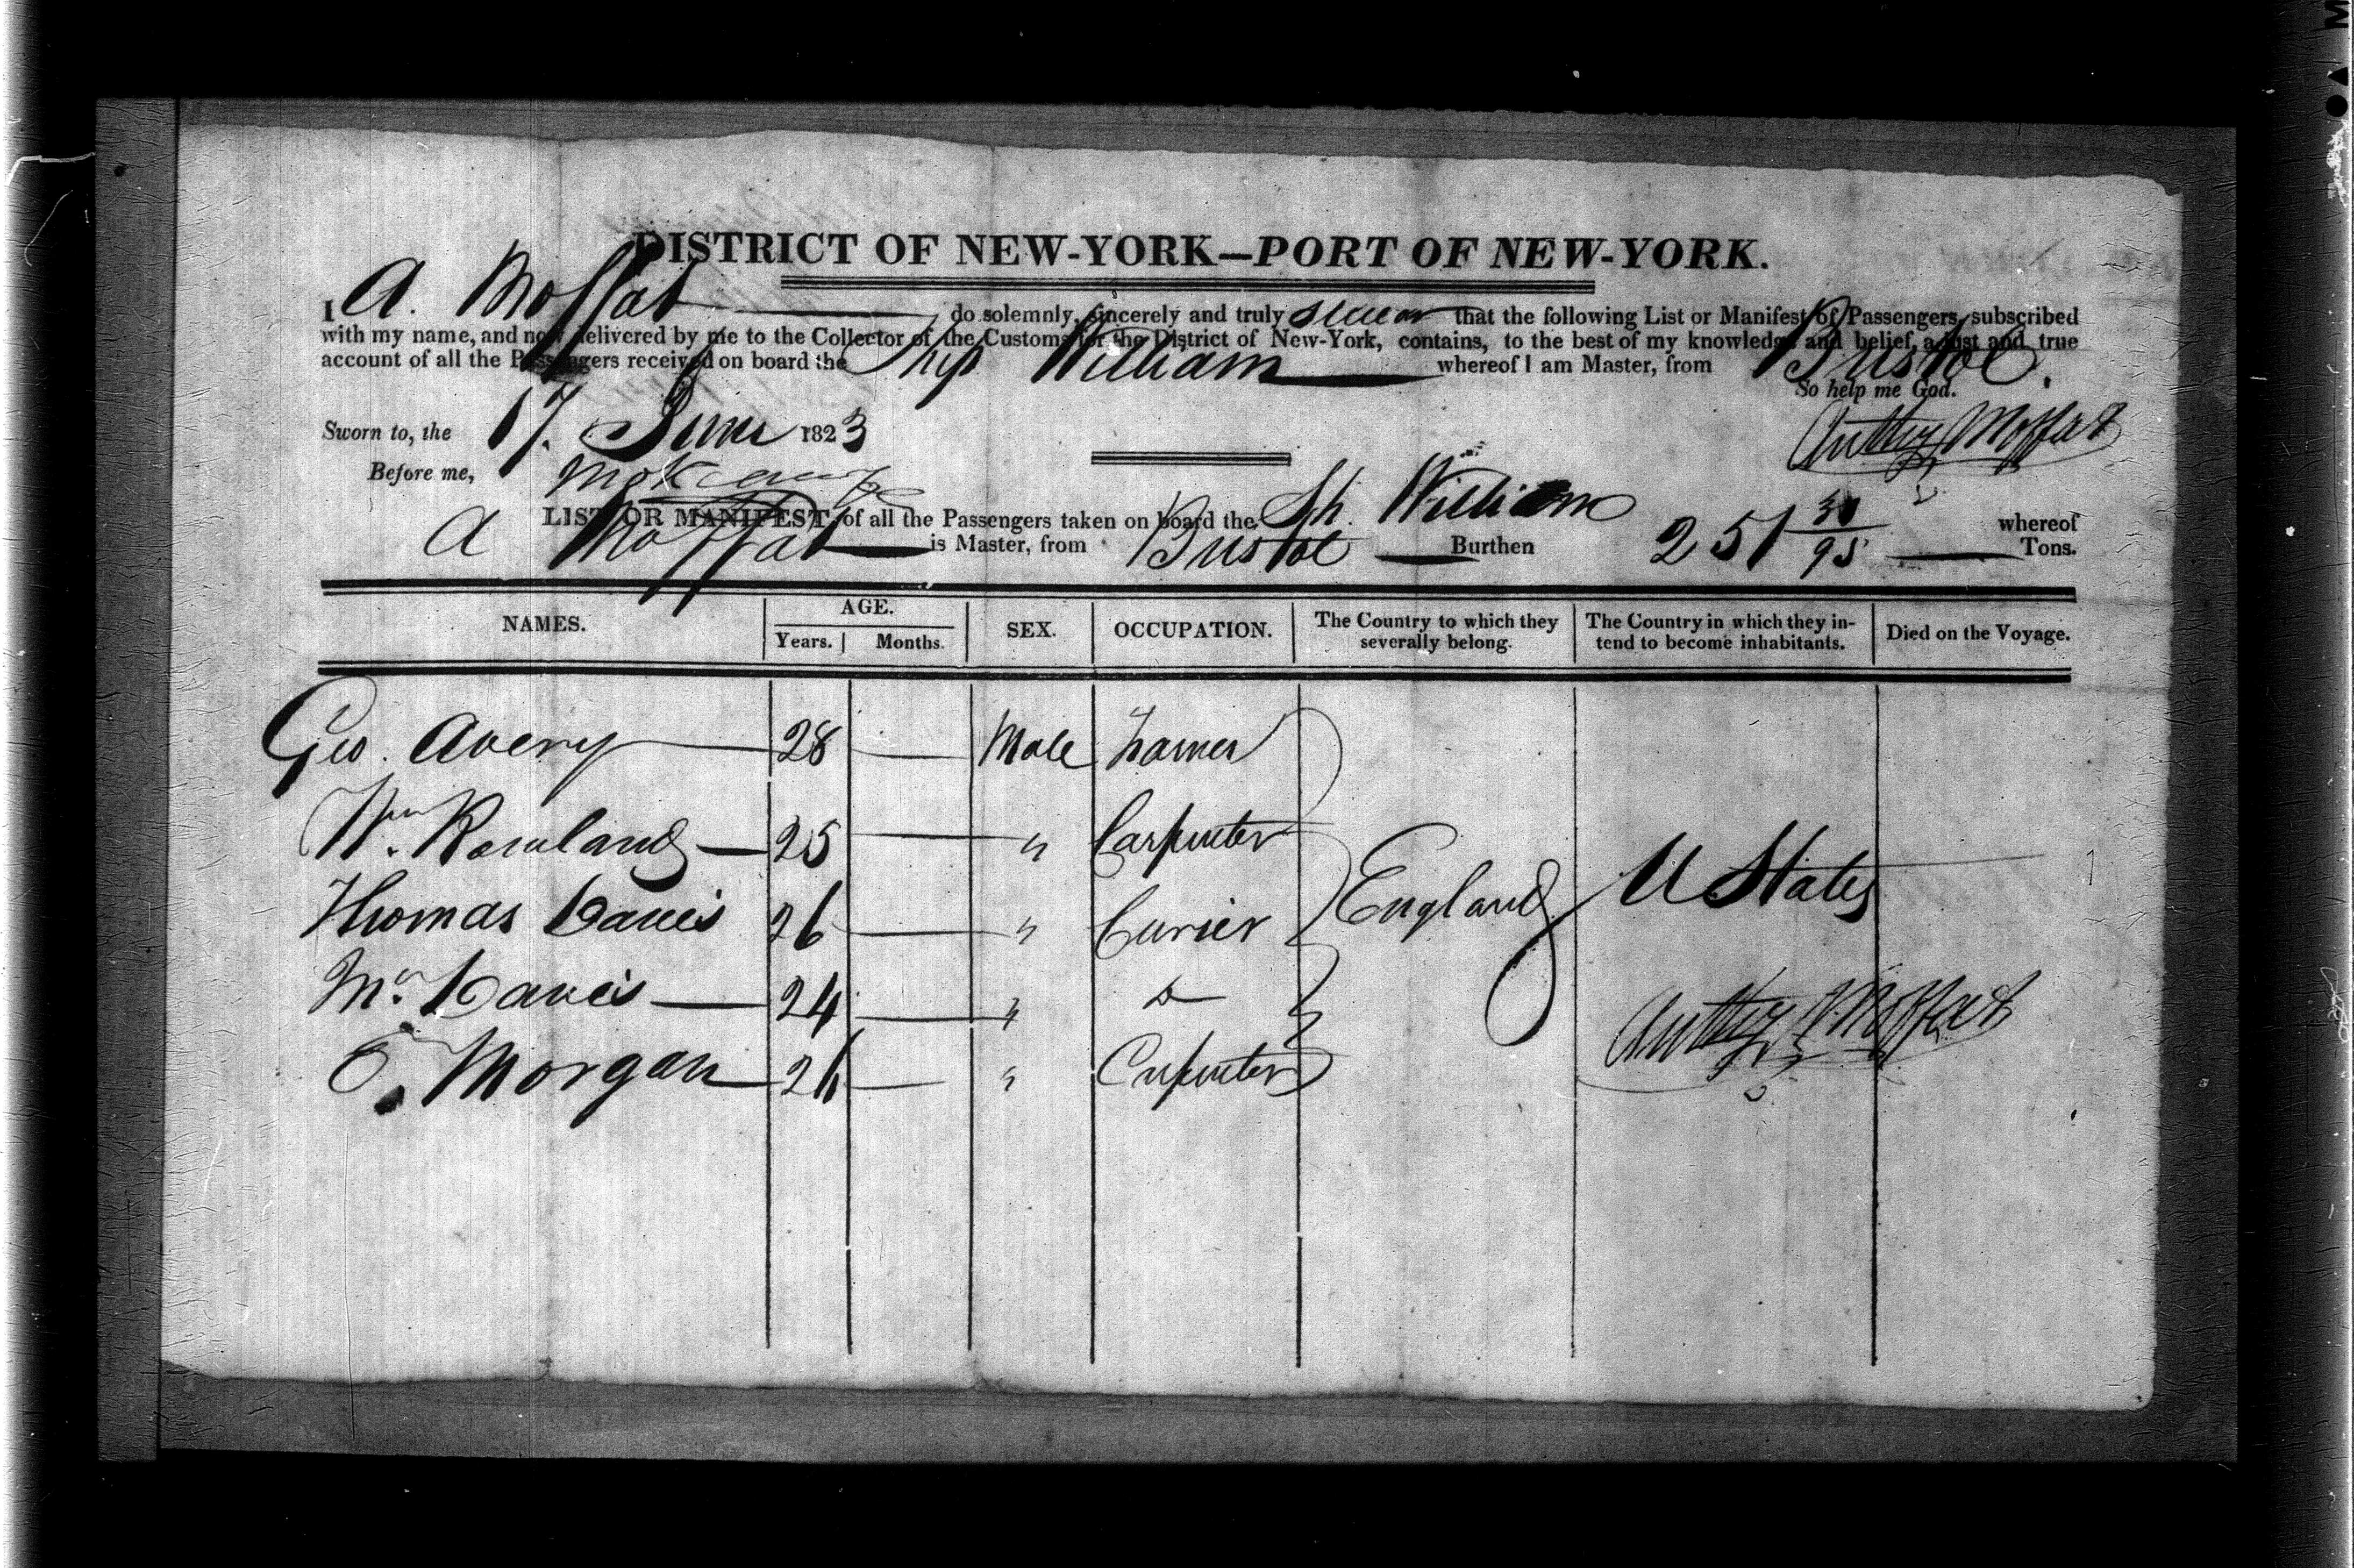 DISTRICT OF NEW-YORK—PORT OF NEW-YORK.
I A. Moffat do solemnly, sincerely and truly swear that the following List or Manifest of Passengers, subscribed
with my name, and now delivered by me to the Collector of the Customs for the District of New-York, contains, to the best of my knowledge and belief, a just and true
account of all the Passengers received on board the Ship William whereof I am Master, from Bristol.
So help me God.
Sworn to, the 17. June 1823
Anthy Moffat
Before me,
LIST OR MANIFEST, of all the Passengers taken on board the Sh. William whereof
A Moffat is Master, from Bristol Burthen 251 /95 Tons.
NAMES. AGE. SEX. OCCUPATION. The Country to which they severally belong. The Country in which they intend to become inhabitants. Died on the Voyage.
Years. Months.
Geo. Avery 28 Male Farmer
Wm. Rowland 25 " Carpenter
Thomas Davis 26 " Currier England U States
Mr. Davis 24 " Do
Morgan 26 " Carpenter
Anthy Moffat